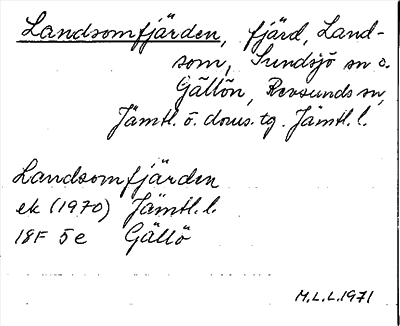 Landsomfjärden, fjärd, Land-
som, Sundsjö sn o.
Gällön, Revsunds sn,
Jämtl. ö. doms. tg. Jämtl. l.
Landsomfjärden
ek (1970) Jämtl. l.
18F 5e Gällö
M.L.L. 1971